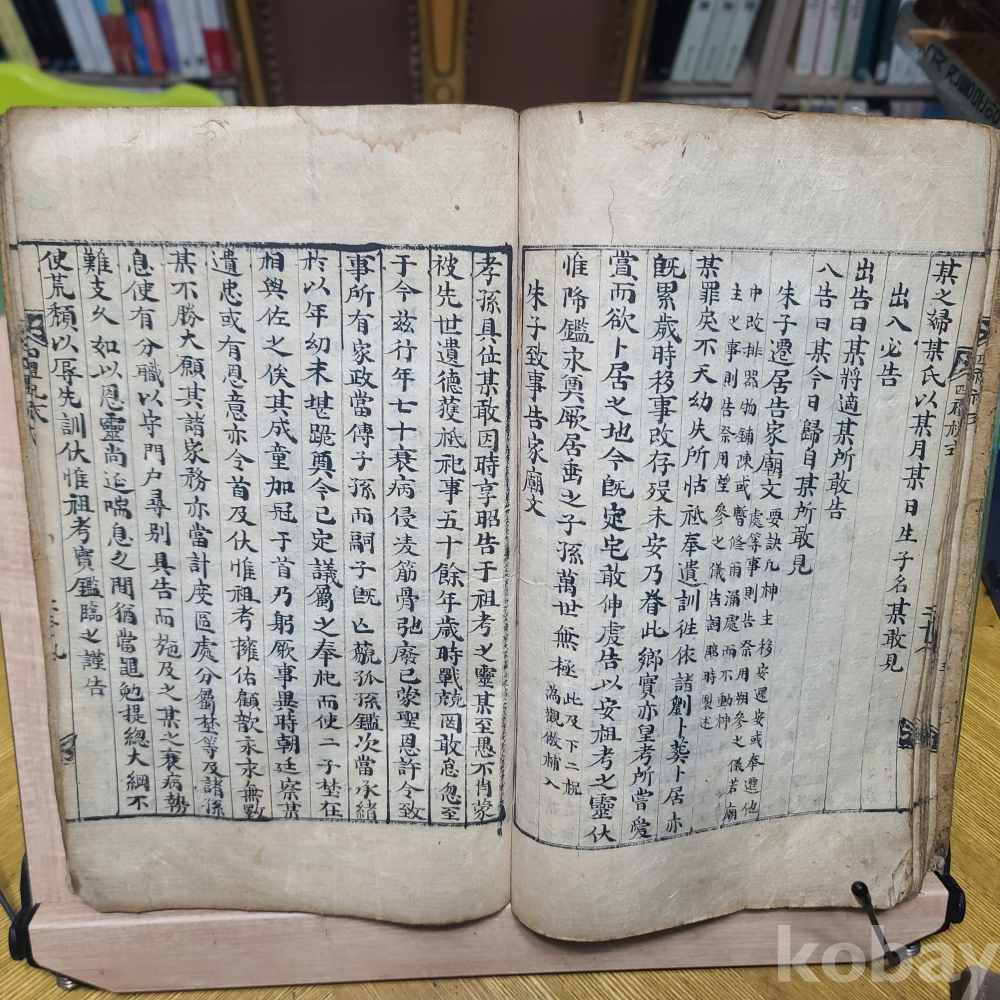 某之婦某氏以某月某日生子名某敢見
出入必告
出告曰某將適某所敢告
入告曰某今日歸自某所敢見
朱子遷居告家廟文 要訣凡神主移安還安或奉遷他處等事則告祭用朔參之儀若廟
中改排器物鋪陳或暫修雨漏處而不動神主之事則告祭用望參之儀告詞臨時製述
某罪戾不天幼失所怙祗奉遺訓往依諸劉卜葬卜居亦
旣累歲時移事改存歿未安乃眷此鄕實亦皇考所嘗愛
賞而欲卜居之地今旣定宅敢伸虔告以安祖考之靈伏
惟降鑑永奠厥居垂之子孫萬世無極 此及下二祝
爲觀倣補入
朱子致事告家廟文
孝孫具位某敢因時享昭告于祖考之靈某至愚不肖蒙
被先世遺德獲祗祀事五十餘年歲時戰兢罔敢怠忽至
于今玆行年七十衰病侵凌筋骨弛廢已蒙聖恩許令致
事所有家政當傳子孫而嗣子旣亡藐孤孫鑑次當承緖
於以年幼未堪跪奠今已定議屬之奉祀而使二子埜在
相與佐之俟其成童加冠于首乃躬厥事異時朝廷察某
遺忠或有恩意亦令首及伏惟祖考擁佑顧歆永永無斁
某不勝大願其諸家務亦當計度區處分屬埜等及諸孫
息使有分職以守門戶尋別具告而施及之某之衰病勢
難支久如以恩靈尙延喘息之間猶當黽勉提總大綱不
使荒頹以辱先訓伏惟祖考實鑑臨之謹告
kobay